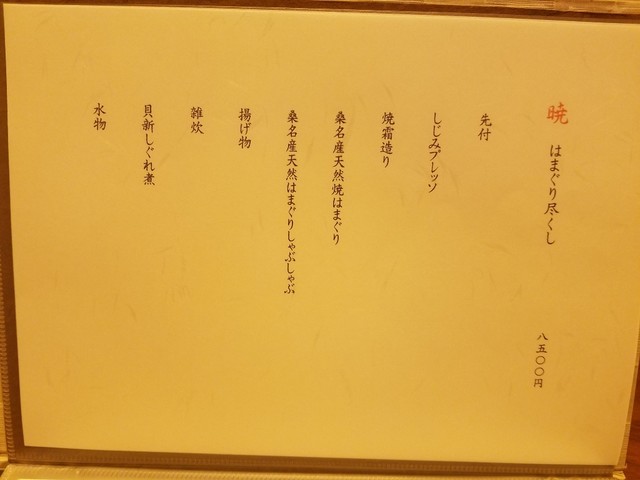 暁 はまぐり尽くし 八五〇〇円
先付
しじみプレッソ
焼霜造り
桑名産天然焼はまぐり
桑名産天然はまぐりしゃぶしゃぶ
揚げ物
雑炊
貝新しぐれ煮
水物